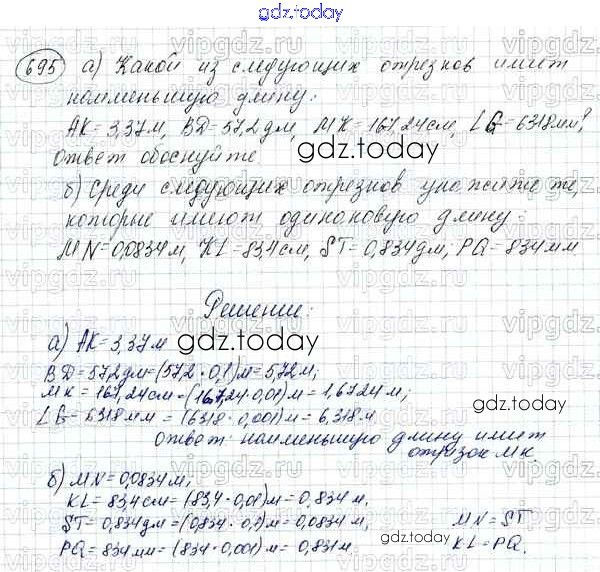 gdz.today
695 а) Какой из следующих отрезков имеет
наименьшую длину:
АК = 3,37м, BD = 57,2дм, МК = 167,24см, LG = 6318мм?
ответ обоснуйте.
gdz.today
б) Среди следующих отрезков укажите те,
которые имеют одинаковую длину:
MN = 0,0834м, KL = 83,4см, ST = 0,834дм, PQ = 834мм
Решение:
а) АК = 3,37м
gdz.today
BD = 57,2дм = (57,2 · 0,1)м = 5,72м;
МК = 167,24см = (167,24 · 0,01)м = 1,6724м;
gdz.today
LG = 6318мм = (6318 · 0,001)м = 6,318м
ответ наименьшую длину имеет
отрезок МК.
б) MN = 0,0834м,
KL = 83,4см = (83,4 · 0,01)м = 0,834м,
ST = 0,834дм = (0,834 · 0,1)м = 0,0834м, MN = ST
PQ = 834мм = (834 · 0,001)м = 0,834м. KL = PQ.
gdz.today